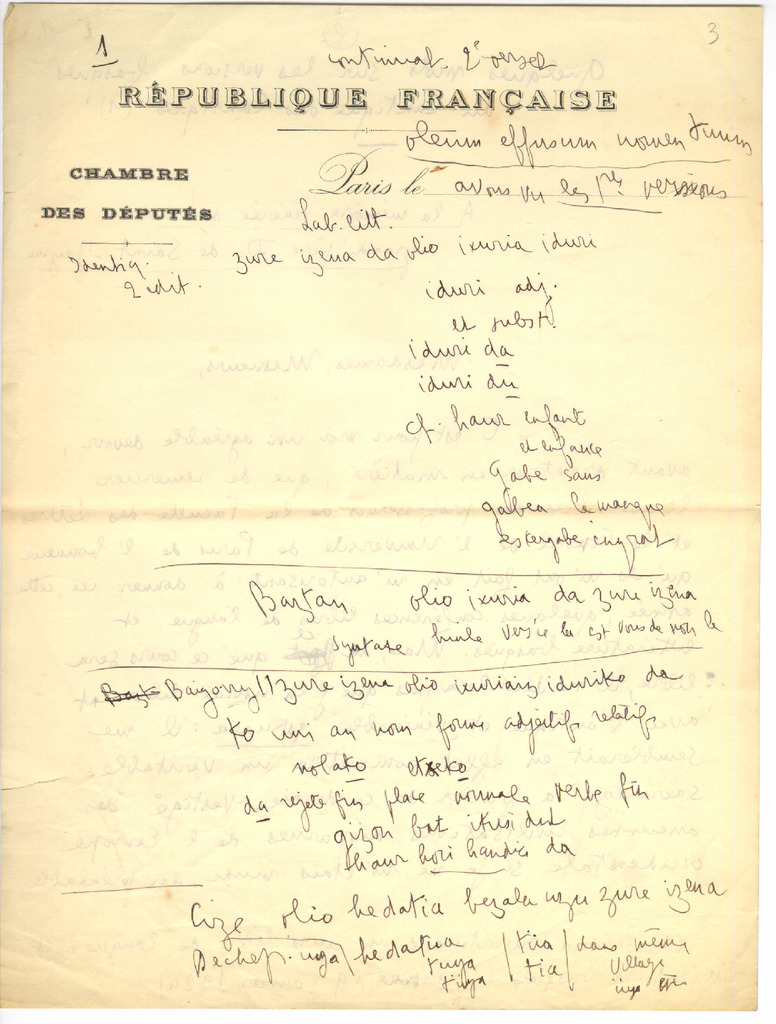 1
3
continuat. 2e verset
RÉPUBLIQUE FRANÇAISE
oleum effusum nomen tuum
CHAMBRE
DES DÉPUTÉS
Paris le avons vu les 1res versions
Lab. litt.
Identiq.
2 edit.
zure izena da olio ixuria iduri
iduri adj.
et subst.
iduri da
iduri du
cf. haur enfant
et enfance
gabe sans
gabea le manque
eskergabe ingrat
Baztan olio ixuria da zure izena
syntaxe huile versée la est vous de nom le
Baigorry // zure izena olio ixuriaren iduriko da
ko uni au nom forme adjectifs relatifs
nolako etxeko
da rejeté fin place normale verbe fin
gizon bat ikusi dut
haur hori handia da
Cize olio hedatia bezala uzu zure izena
hedatua
tuya
tiya
tia
dans même
village